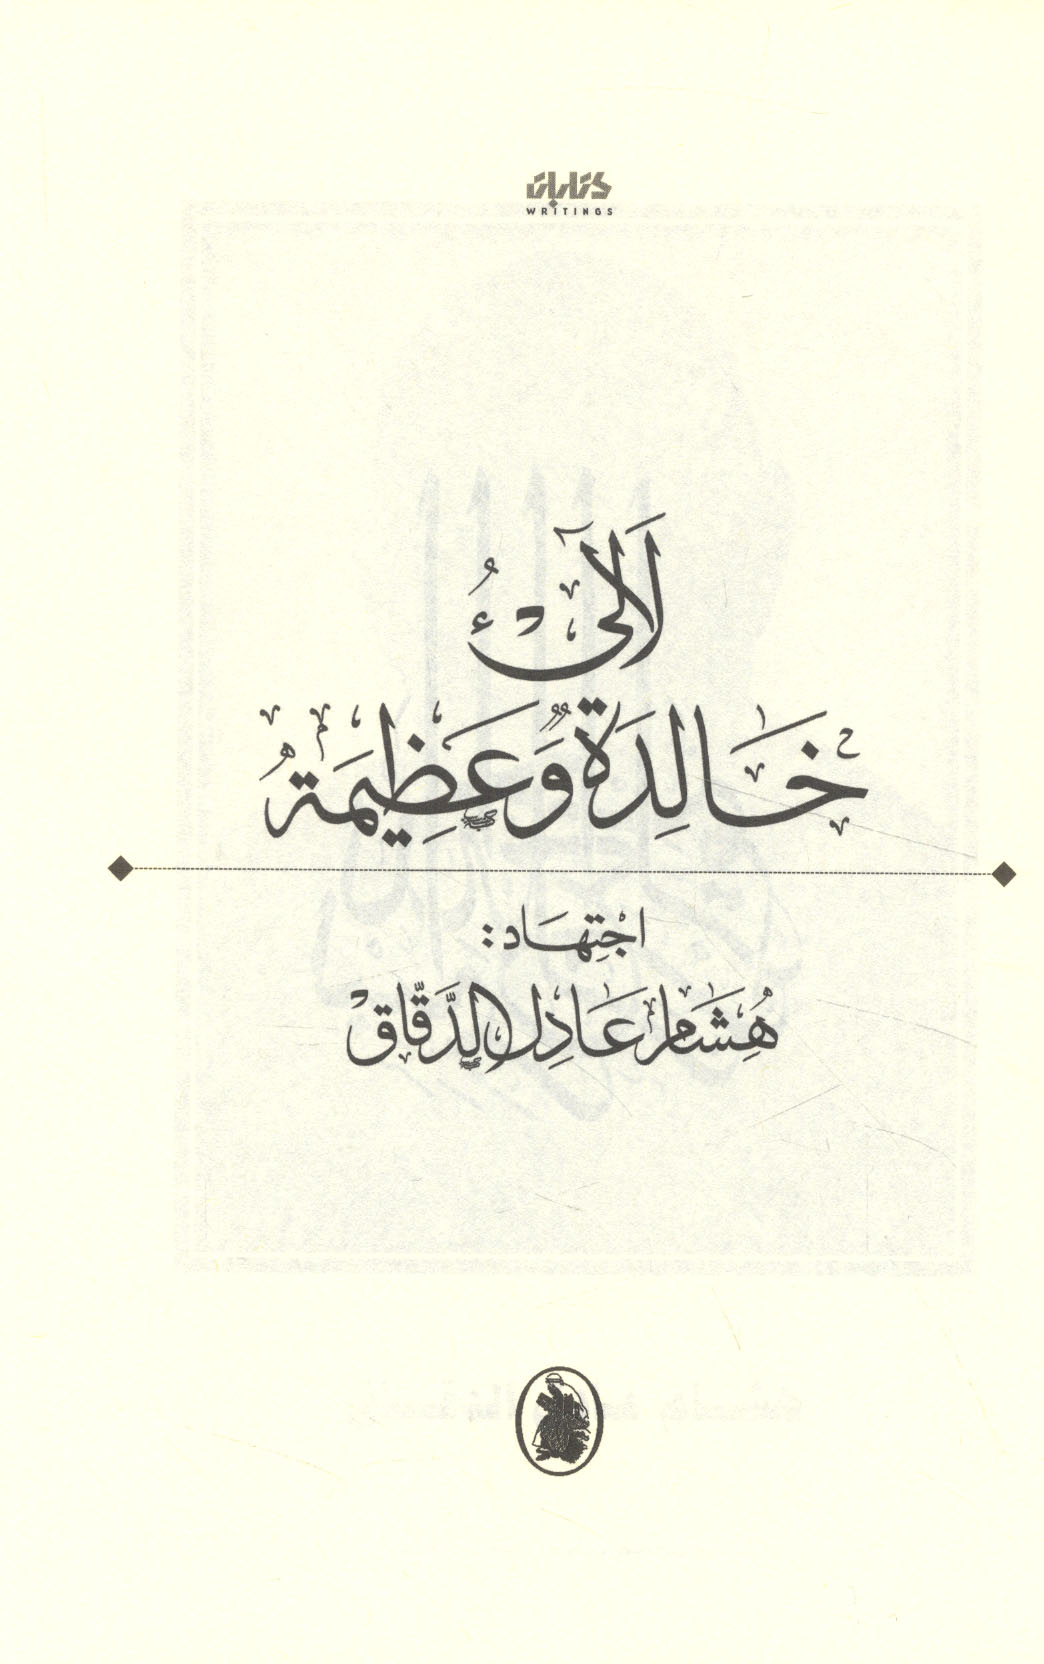 كتابات
WRITINGS
لَآلِئُ
خَالِدَةٌ وَعَظِيمَةٌ
اجْتِهَاد:
هِشَام عَادِل الدَّقَّاقْ